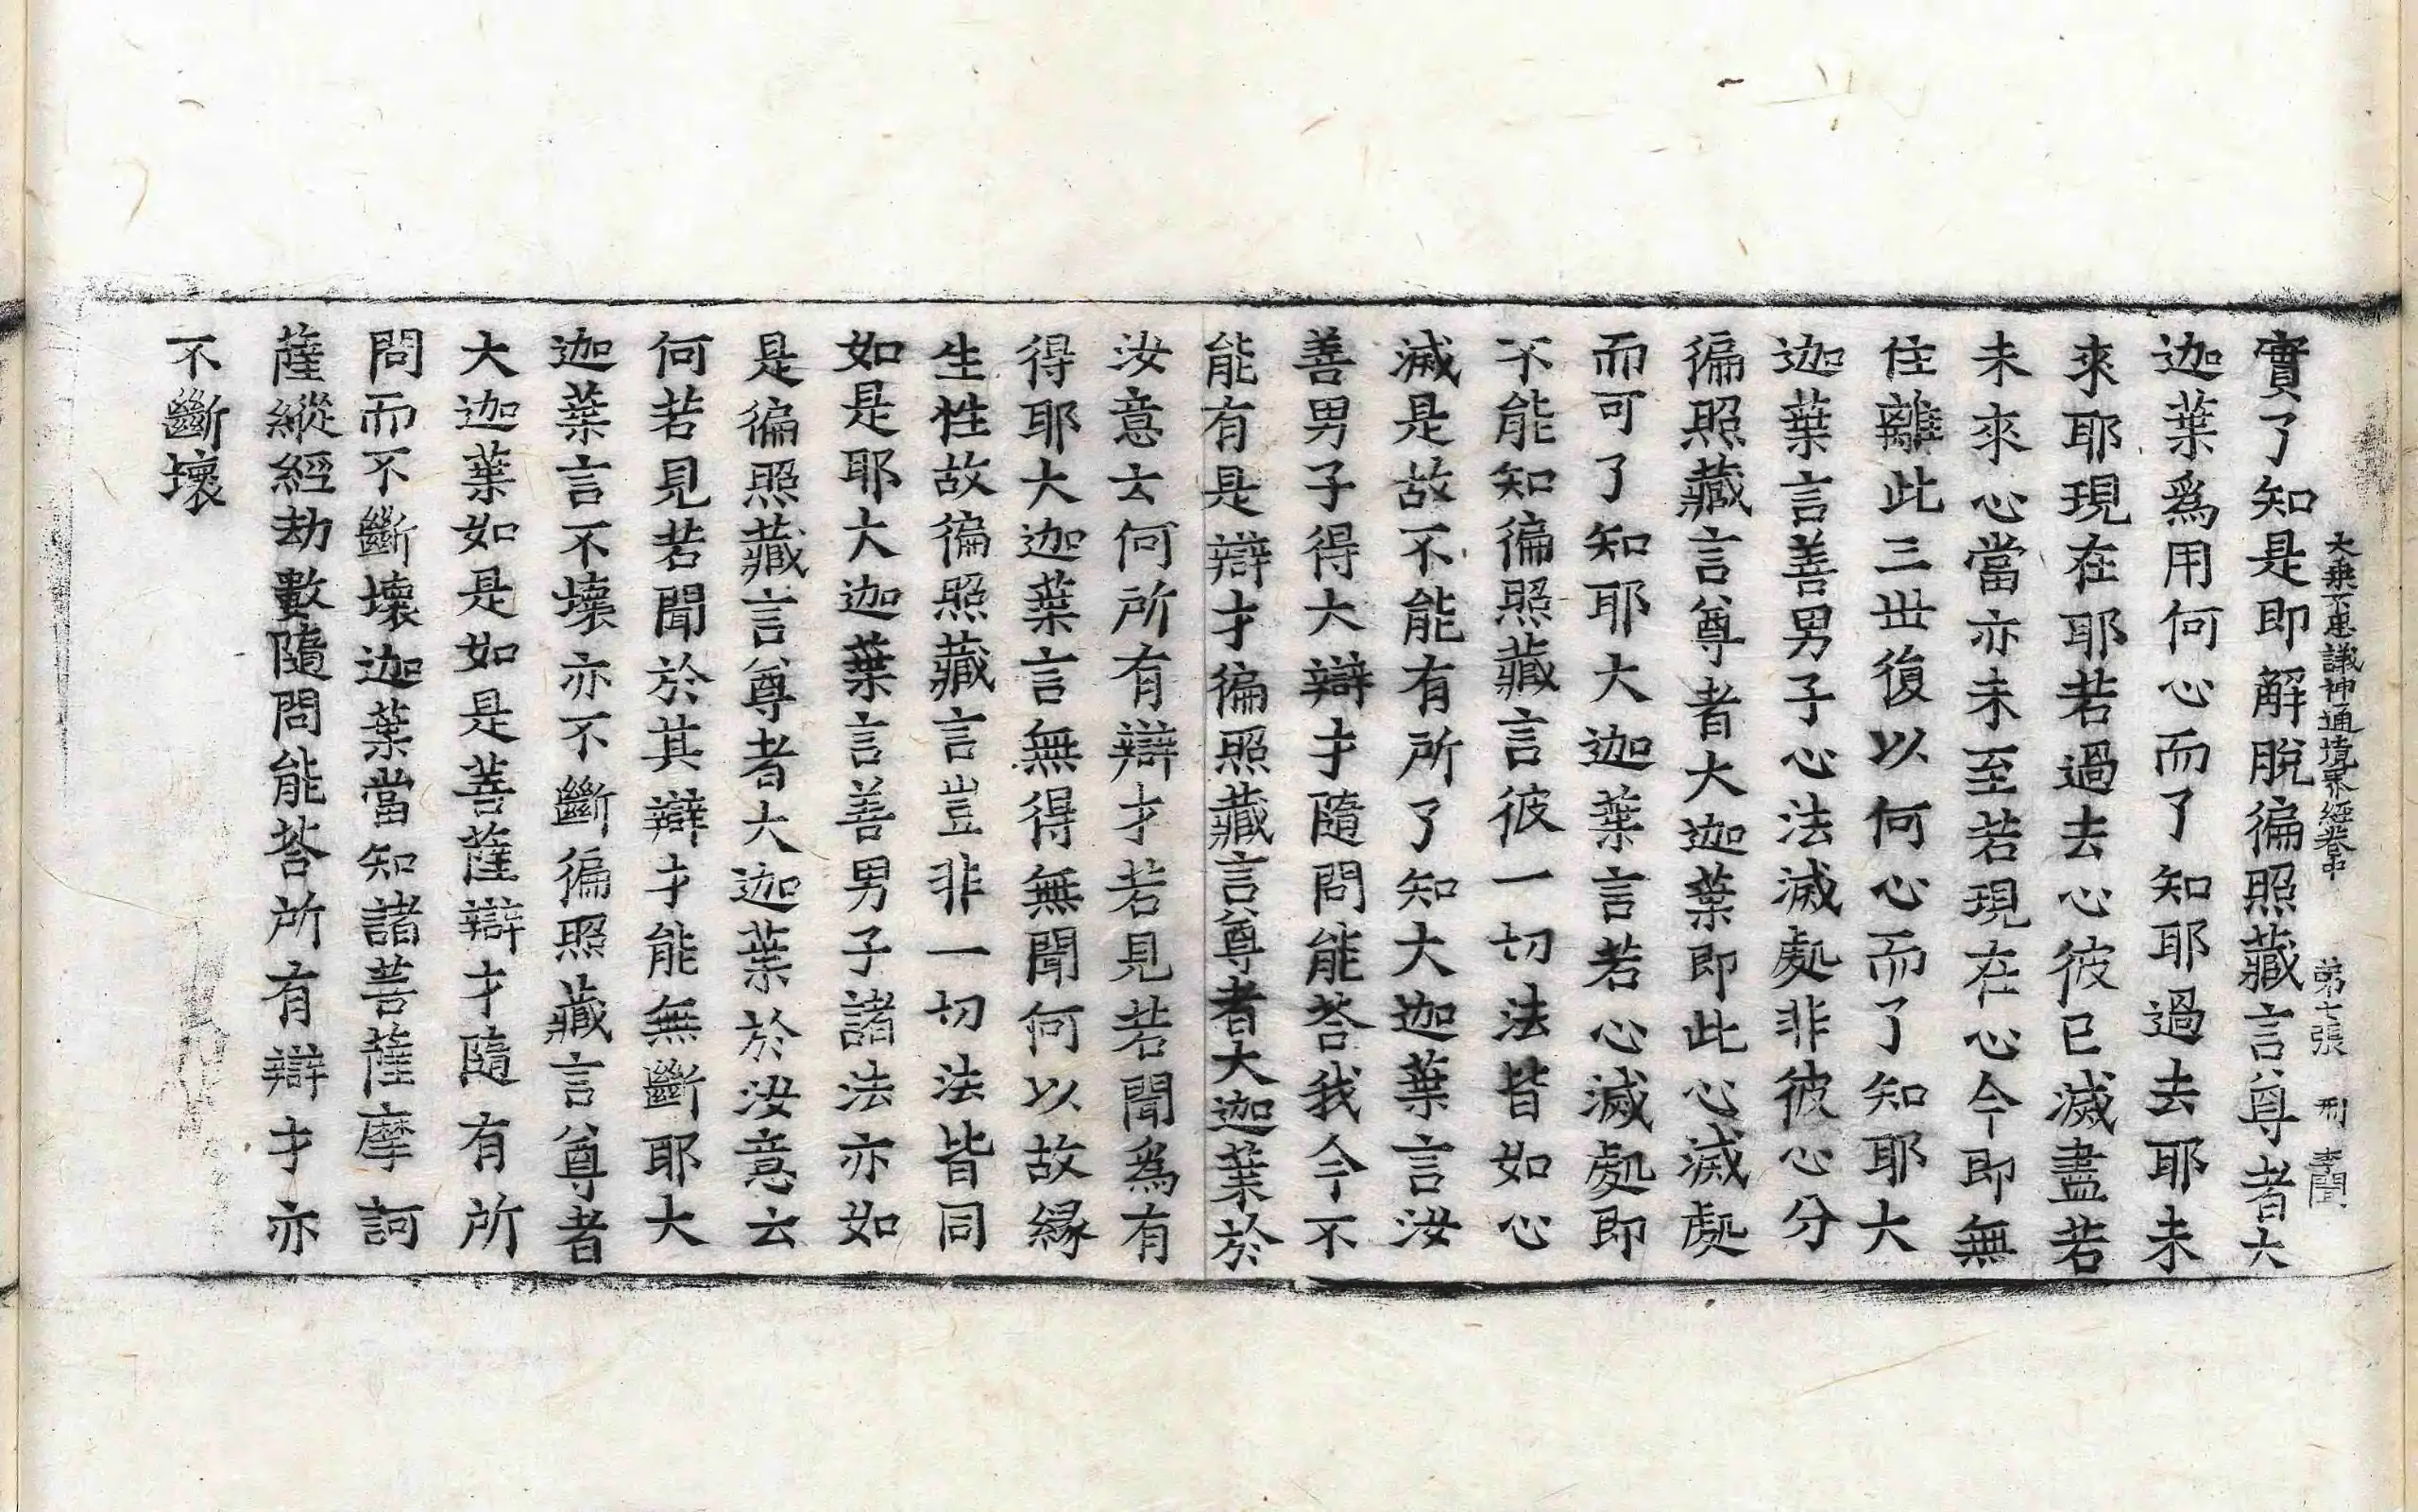 大乘不思議神通境界經卷中 第七張 刑 李聞
實了知是即解脫徧照藏言尊者大
迦葉爲用何心而了知耶過去耶未
來耶現在耶若過去心彼已滅盡若
未來心當亦未至若現在心今即無
住離此三世復以何心而了知耶大
迦葉言善男子心法滅處非彼心分
徧照藏言尊者大迦葉即此心滅處
而可了知耶大迦葉言若心滅處即
不能知徧照藏言彼一切法皆如心
滅是故不能有所了知大迦葉言汝
善男子得大辯才隨問能荅我今不
能有是辯才徧照藏言尊者大迦葉於
汝意云何所有辯才若見若聞為有
得耶大迦葉言無得無聞何以故緣
生性故徧照藏言豈非一切法皆同
如是耶大迦葉言善男子諸法亦如
是徧照藏言尊者大迦葉於汝意云
何若見若聞於其辯才能無斷耶大
迦葉言不壞亦不斷徧照藏言尊者
大迦葉如是如是菩薩辯才隨有所
問而不斷壞迦葉當知諸菩薩摩訶
薩縱經劫數隨問能荅所有辯才亦
不斷壞